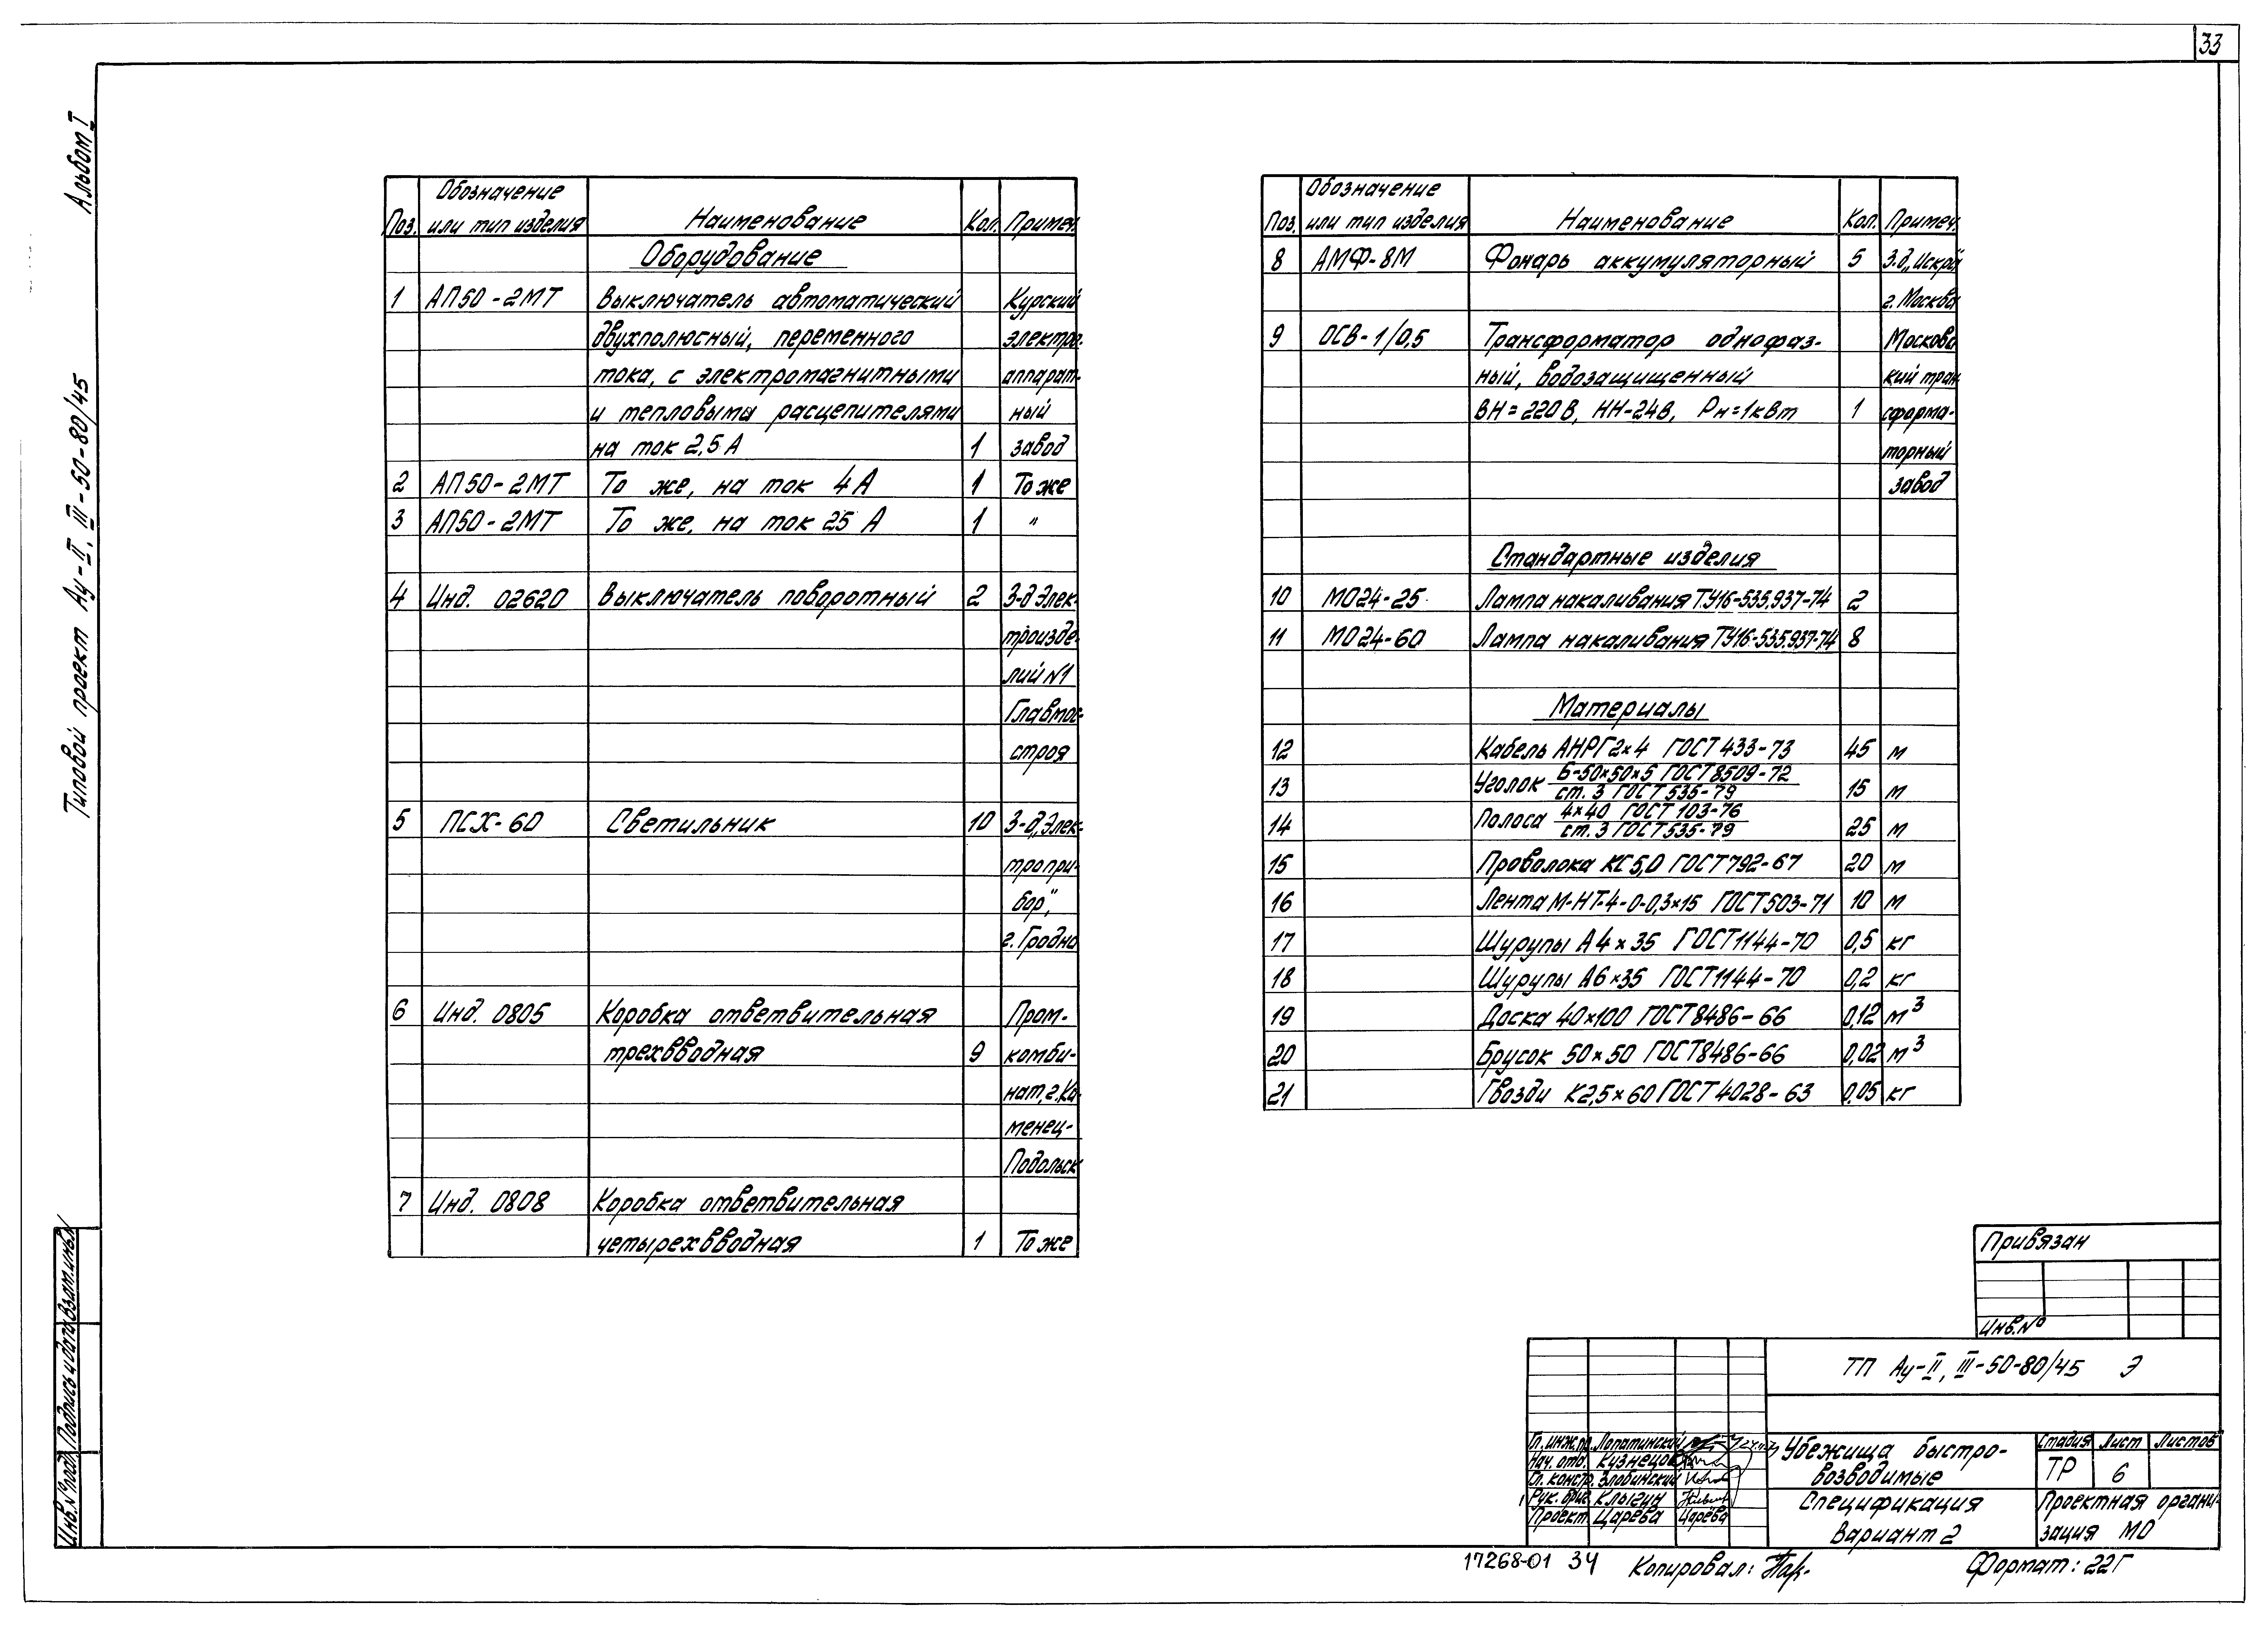 33
Альбом I
Типовой проект Ау-II, III-50-80/45
Поз. Обозначение или тип изделия Наименование Кол. Примеч.
Оборудование
1 АП50-2МТ Выключатель автоматический Курский
двухполюсный, переменного электро-
тока, с электромагнитными аппарат-
и тепловыма расцепителями ный
на ток 2,5 А 1 завод
2 АП50-2МТ То же, на ток 4 А 1 То же
3 АП50-2МТ То же, на ток 25 А 1 "
4 Инд. 02620 Выключатель поворотный 2 З-д Элек-
троизде-
лий N1
Главмос-
строя
5 ПСХ-60 Светильник 10 З-д „Элек-
тропри-
бор",
г. Гродно
6 Инд. 0805 Коробка ответвительная Пром-
трехвводная 9 комби-
нат, г. Ка-
менец-
Подольск
7 Инд. 0808 Коробка ответвительная
четырехвводная 1 То же
Поз. Обозначение или тип изделия Наименование Кол. Примеч.
8 АМФ-8М Фонарь аккумуляторный 5 З-д „Искра"
г. Москва
9 ОСВ-1/0,5 Трансформатор однофаз- Москов
ный, водозащищенный кий тран
ВН=220 В, НН-24В, Рн=1кВт 1 сформа-
торный
завод
Стандартные изделия
10 МО24-25 Лампа накаливания ТУ16-535.937-74 2
11 МО24-60 Лампа накаливания ТУ16-535.937-74 8
Материалы
12 Кабель АНРГ 2×4 ГОСТ 433-73 45 м
13 Уголок Б-50×50×5 ГОСТ 8509-72 / ст. 3 ГОСТ 535-79 15 м
14 Полоса 4×40 ГОСТ 103-76 / ст. 3 ГОСТ 535-79 25 м
15 Проволока КС 5,0 ГОСТ 792-67 20 м
16 Лента М-НТ-4-0-0,3×15 ГОСТ 503-71 10 м
17 Шурупы А4×35 ГОСТ 1144-70 0,5 кг
18 Шурупы А6×35 ГОСТ 1144-70 0,2 кг
19 Доска 40×100 ГОСТ 8486-66 0,12 м³
20 Брусок 50×50 ГОСТ 8486-66 0,02 м³
21 Гвозди К2,5×60 ГОСТ 4028-63 0,05 кг
Привязан
Инв.№
ТП Ау-II, III-50-80/45 Э
Гл. инж. пр. Лопатинский
Нач. отд. Кузнецов
Гл. констр. Злобинский
Рук. бриг. Клыгин
Проект. Царёва Царёва
Убежища быстро-
возводимые
Стадия Лист Листов
ТР 6
Спецификация
Вариант 2
Проектная органи-
зация МО
Инв.№ подл. Подпись и дата Взам.инв.№
17268-01 34
Копировал:
Формат: 22Г